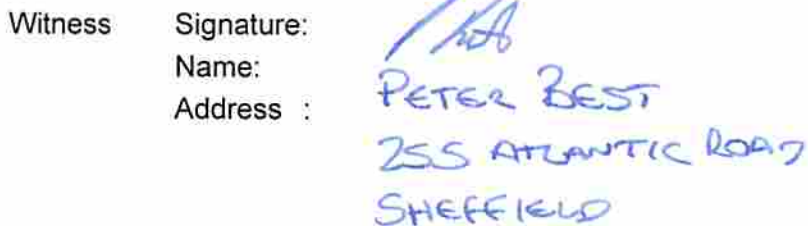 Witness Signature:
Name: PETER BEST
Address : 255 ATLANTIC ROAD
SHEFFIELD